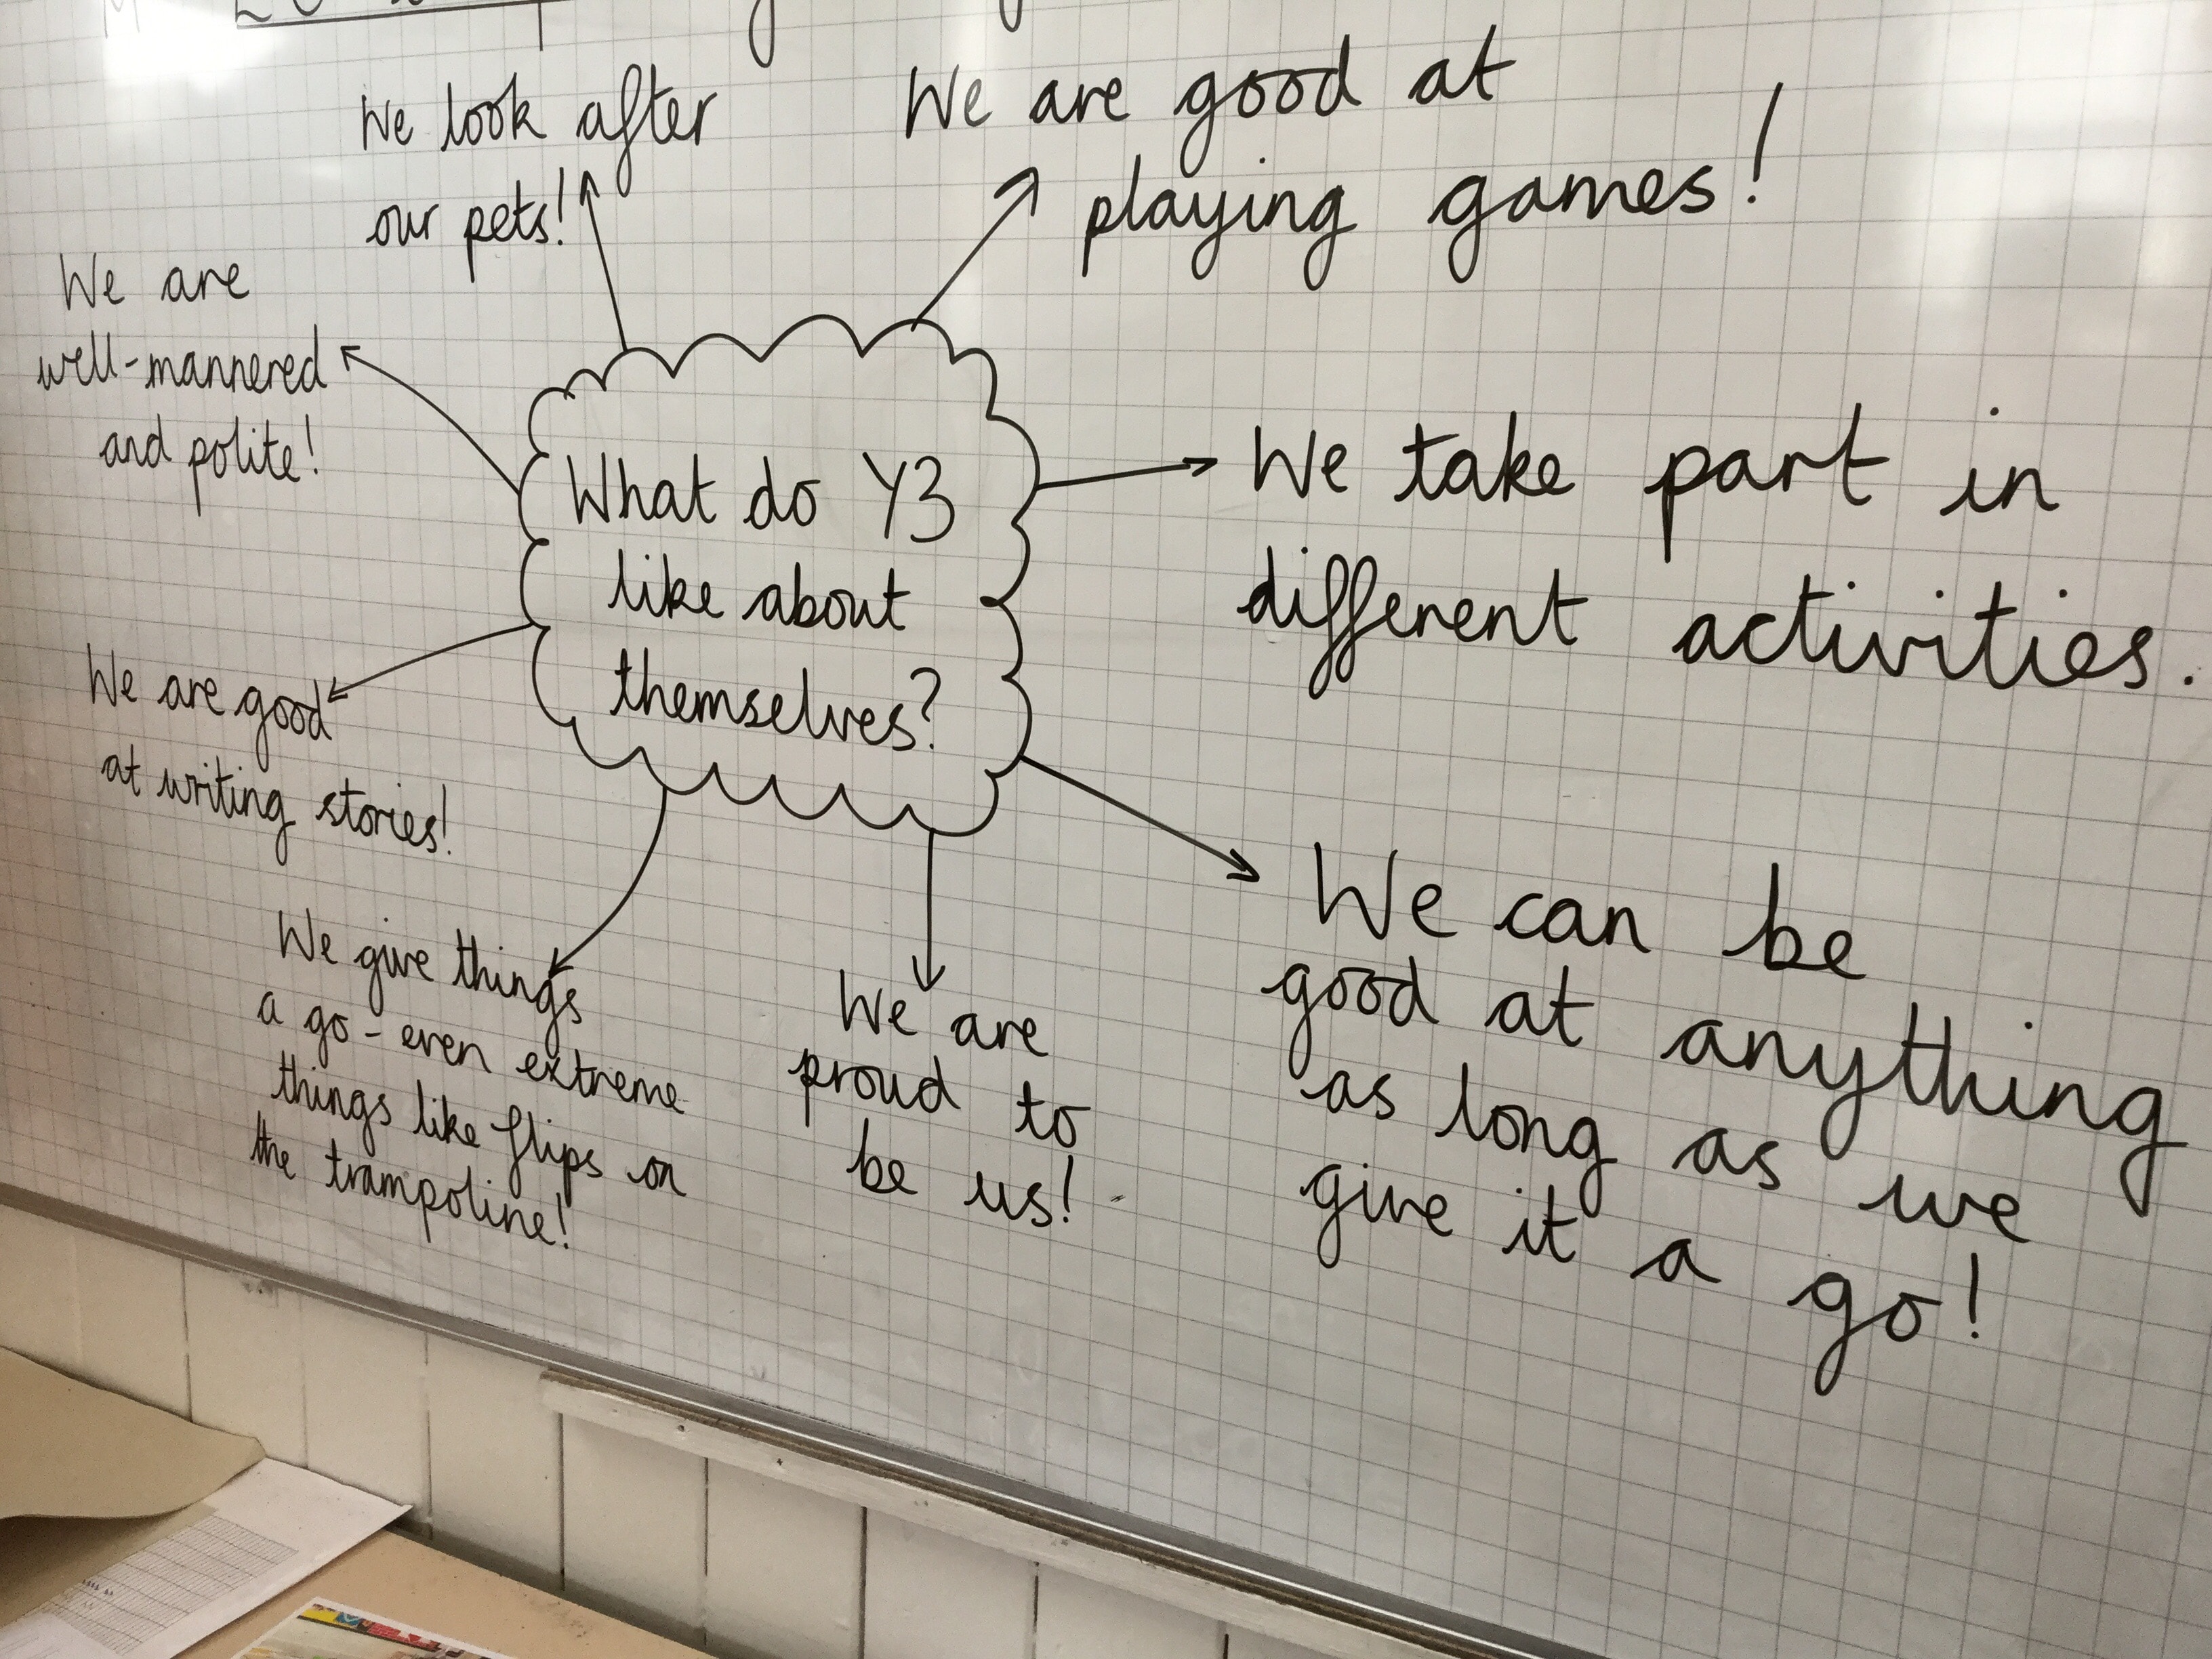 What do Y3
like about
themselves?
We look after
our pets!
We are good at
playing games!
We take part in
different activities.
We can be
good at anything
as long as we
give it a go!
We are
proud to
be us!
We give things
a go - even extreme
things like flips on
the trampoline!
We are good
at writing stories!
We are
well-mannered
and polite!